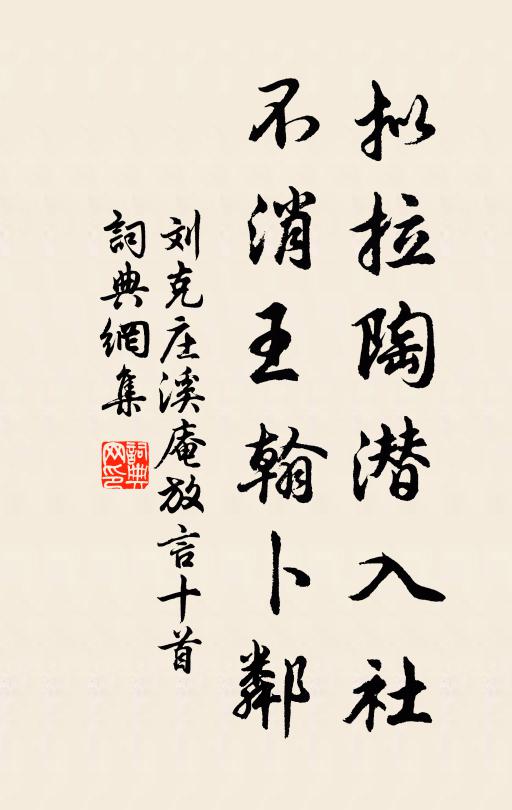 拟拉陶潜入社
不消王翰卜鄰
刘克庄溪庵放言十首
詞典網集
詞典网印